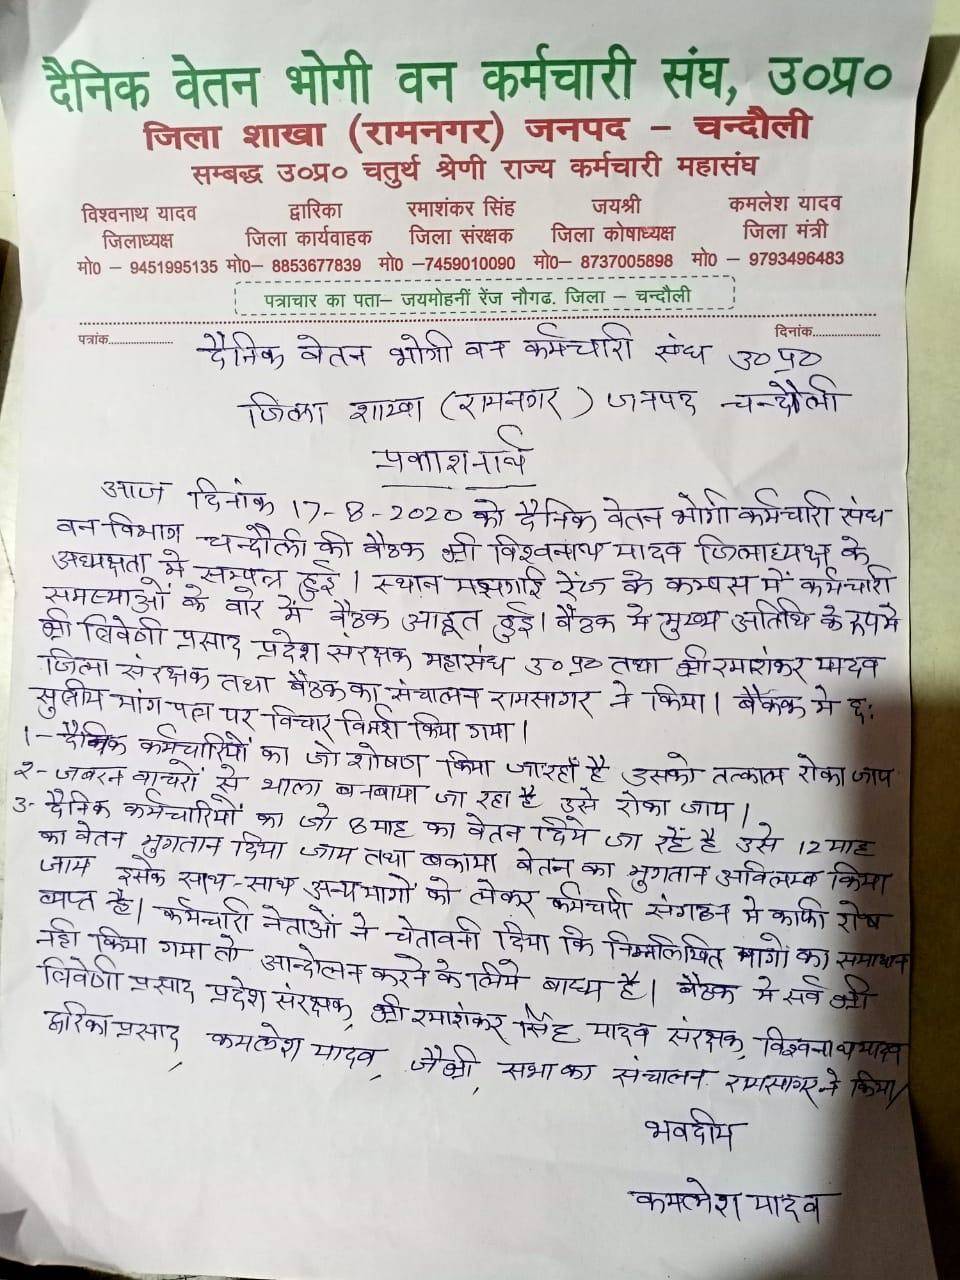 दैनिक वेतन भोगी वन कर्मचारी संघ, उ०प्र०
जिला शाखा (रामनगर) जनपद – चन्दौली
सम्बद्ध उ०प्र० चतुर्थ श्रेणी राज्य कर्मचारी महासंघ
विश्वनाथ यादव द्वारिका रमाशंकर सिंह जयश्री कमलेश यादव
जिलाध्यक्ष जिला कार्यवाहक जिला संरक्षक जिला कोषाध्यक्ष जिला मंत्री
मो० – 9451995135 मो०– 8853677839 मो० –7459010090 मो०– 8737005898 मो० – 9793496483
पत्राचार का पता– जयमोहनीं रेंज नौगढ. जिला – चन्दौली
पत्रांक..................... दिनांक.....................
दैनिक वेतन भोगी वन कर्मचारी संघ उ०प्र०
जिला शाखा (रामनगर) जनपद चन्दौली
प्रकाशनार्थ
आज दिनांक 17-8-2020 को दैनिक वेतन भोगी कर्मचारी संघ
वन विभाग चन्दौली की बैठक श्री विश्वनाथ यादव जिलाध्यक्ष के
अध्यक्षता मे सम्पन्न हुई। स्थान मझगाई रेंज के कम्पस में कर्मचारी
समस्याओं के बारे में बैठक आहूत हुई। बैठक मे मुख्य अतिथि के रूप मे
श्री त्रिवेणी प्रसाद प्रदेश संरक्षक महासंघ उ०प्र० तथा श्री रमाशंकर यादव
जिला संरक्षक तथा बैठक का संचालन रामसागर ने किया। बैठक मे छः
सुत्रीय मांग पत्र पर विचार विमर्श किया गया।
1- दैनिक कर्मचारियों का जो शोषण किया जा रहाँ है उसको तत्काल रोका जाय
2- जबरन वाचरों से भाला बनबाया जा रहा है उसे रोका जाय।
3- दैनिक कर्मचारियों का जो 8 माह का वेतन दिये जा रहें है उसे 12 माह
का वेतन भुगतान दिया जाय तथा बकाया वेतन का भुगतान अविलम्ब किया
जाय इसके साथ-साथ अन्य मागों को लेकर कर्मचारी संगठन मे काफी रोष
व्यप्त है। कर्मचारी नेताओं ने चेतावनी दिया कि निम्नलिखित मागो का समाधान
नही किया गया तो आन्दोलन करने के लिये बाध्य है। बैठक मे सर्व श्री
त्रिवेणी प्रसाद प्रदेश संरक्षक, श्री रमाशंकर सिंह यादव संरक्षक, विश्वनाथ यादव
द्वारिका प्रसाद, कमलेश यादव, जैश्री, सभा का संचालन रामसागर ने किया/
भवदीय
कमलेश यादव